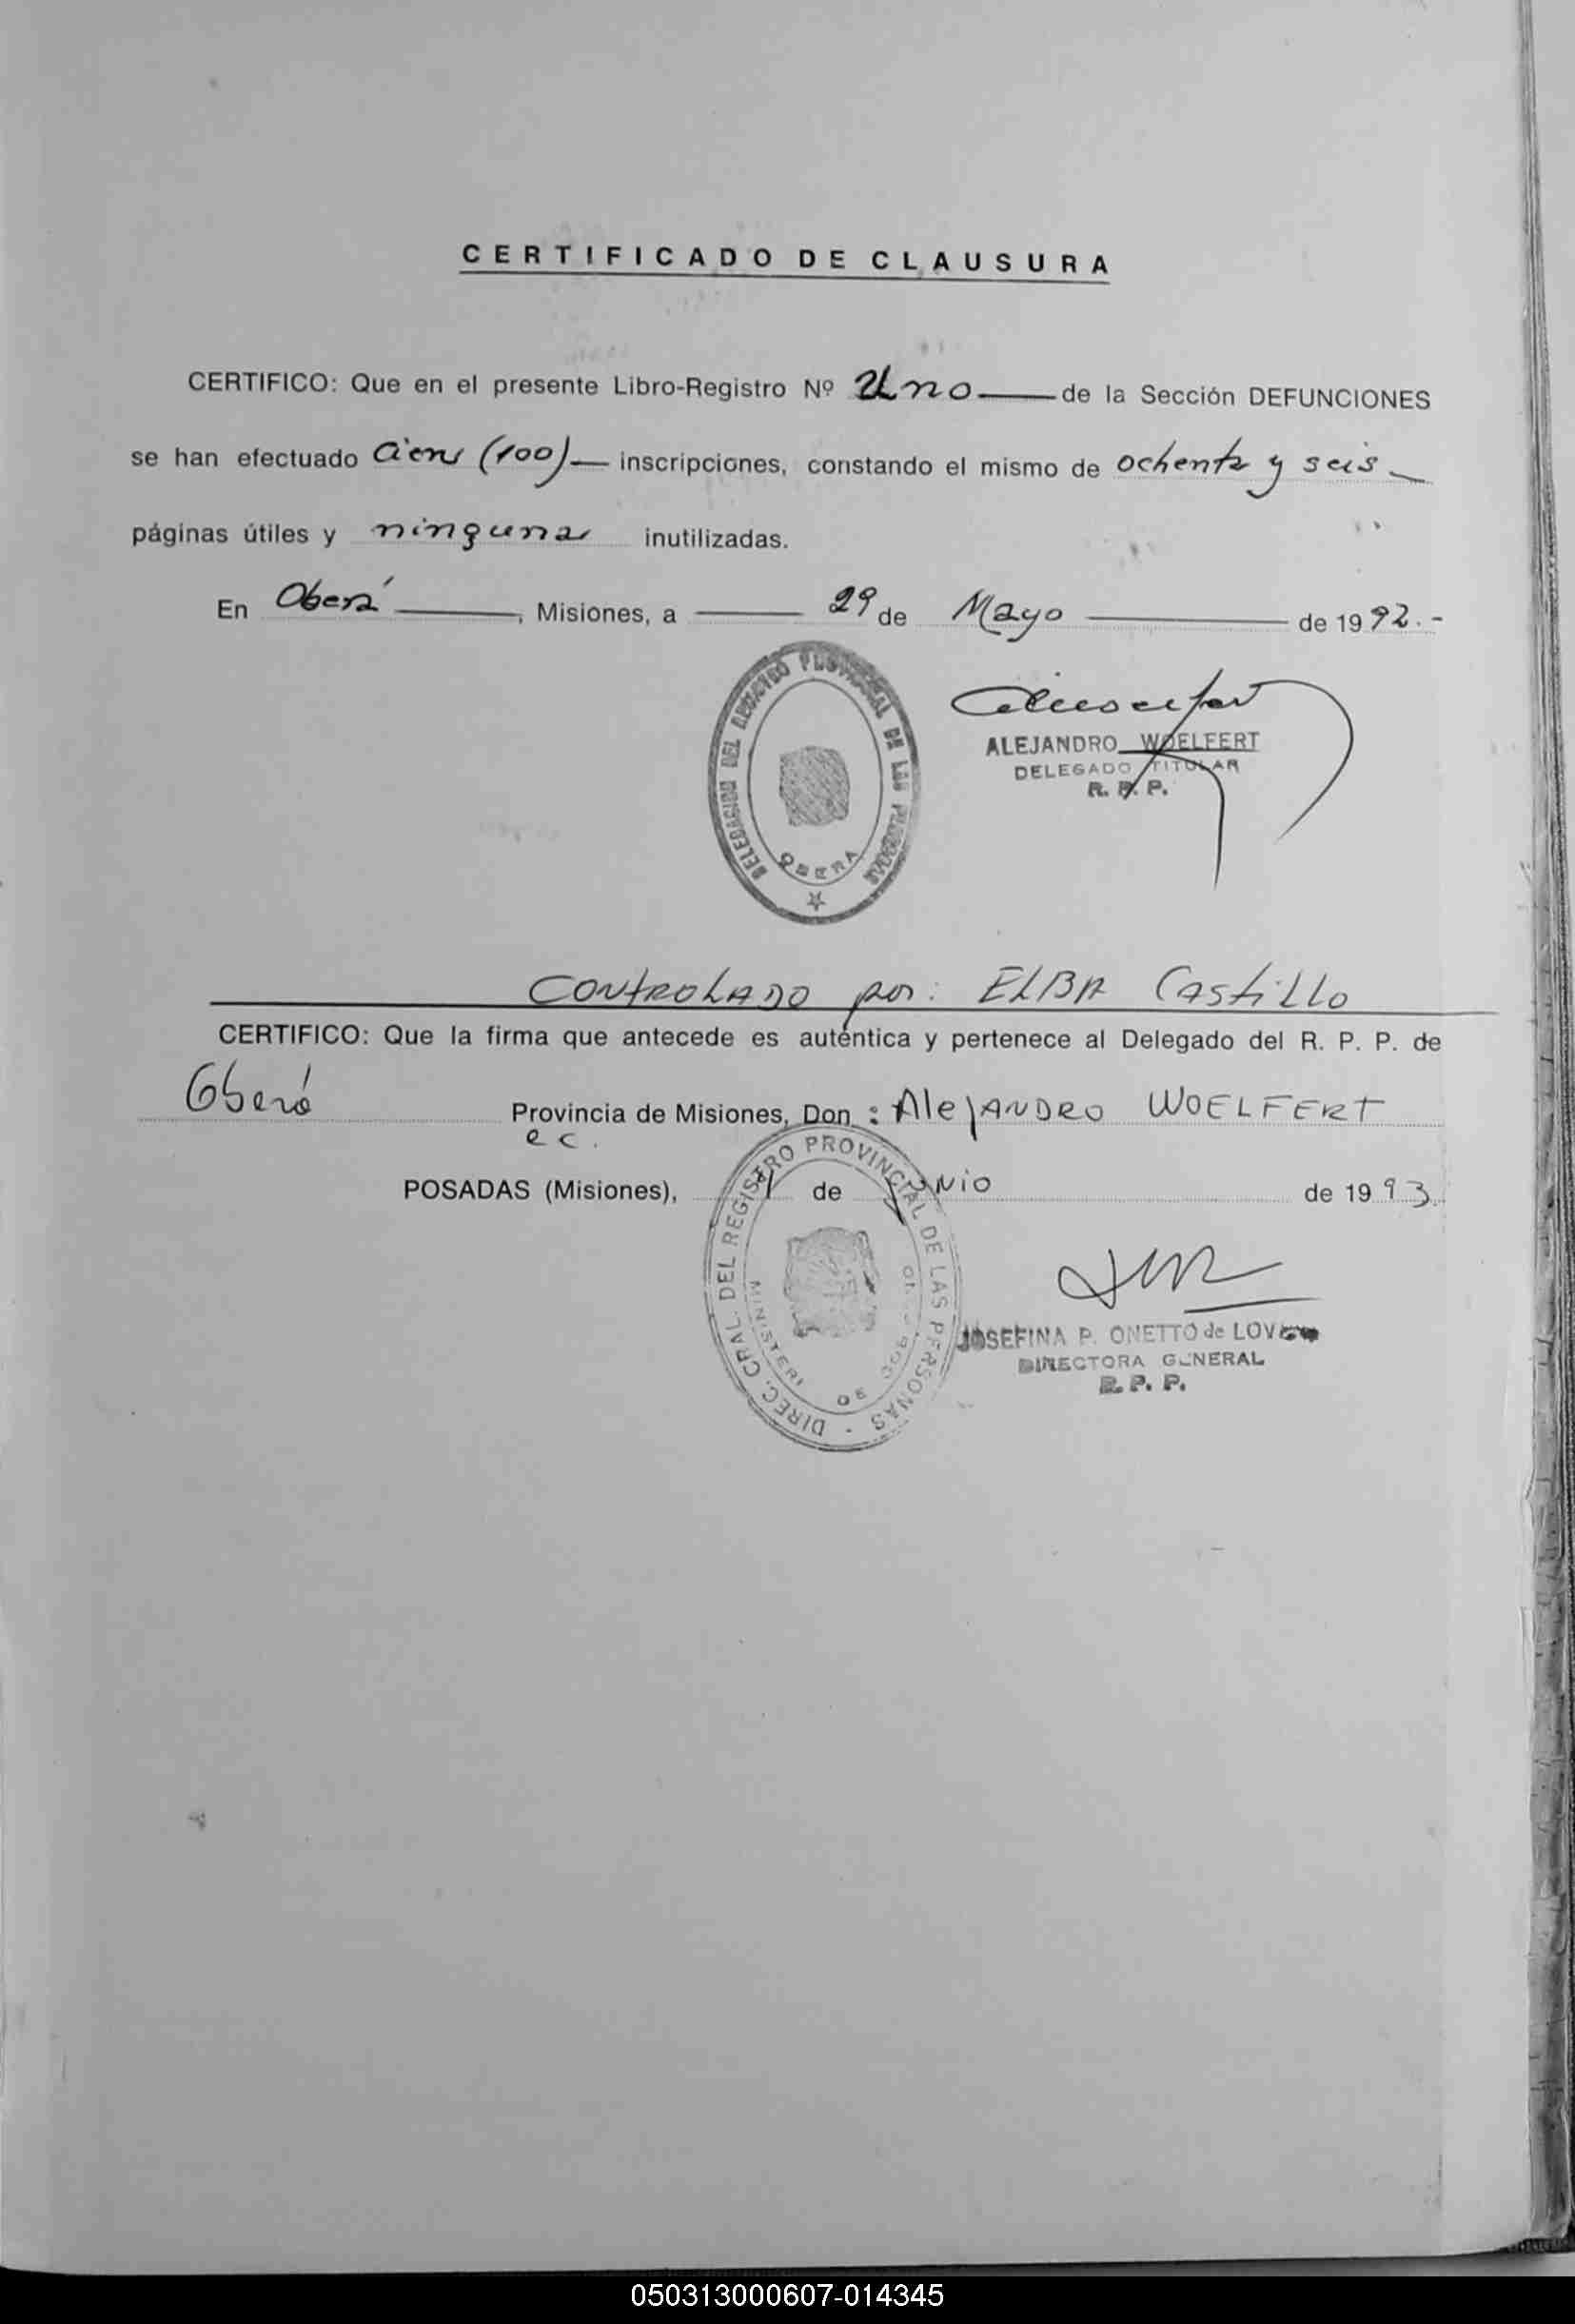 CERTIFICADO DE CLAUSURA
CERTIFICO: Que en el presente Libro-Registro Nº Uno de la Sección DEFUNCIONES
se han efectuado Cien (100) inscripciones, constando el mismo de ochenta y seis
páginas útiles y ninguna inutilizadas.
En Oberá, Misiones, a 29 de Mayo de 1992.-
DELEGACION DEL REGISTRO PROVINCIAL DE LAS PERSONAS
OBERA
ALEJANDRO WOELFERT
DELEGADO TITULAR
R. P. P.
CONTROLADO por: ELBA Castillo
CERTIFICO: Que la firma que antecede es auténtica y pertenece al Delegado del R. P. P. de
Oberá Provincia de Misiones, Don : AleJANDRO WOELFERT
ec.
POSADAS (Misiones), de junio de 1993
DIREC. GRAL. DEL REGISTRO PROVINCIAL DE LAS PERSONAS
JOSEFINA P. ONETTO de
DIRECTORA GENERAL
R. P. P.
050313000607-014345